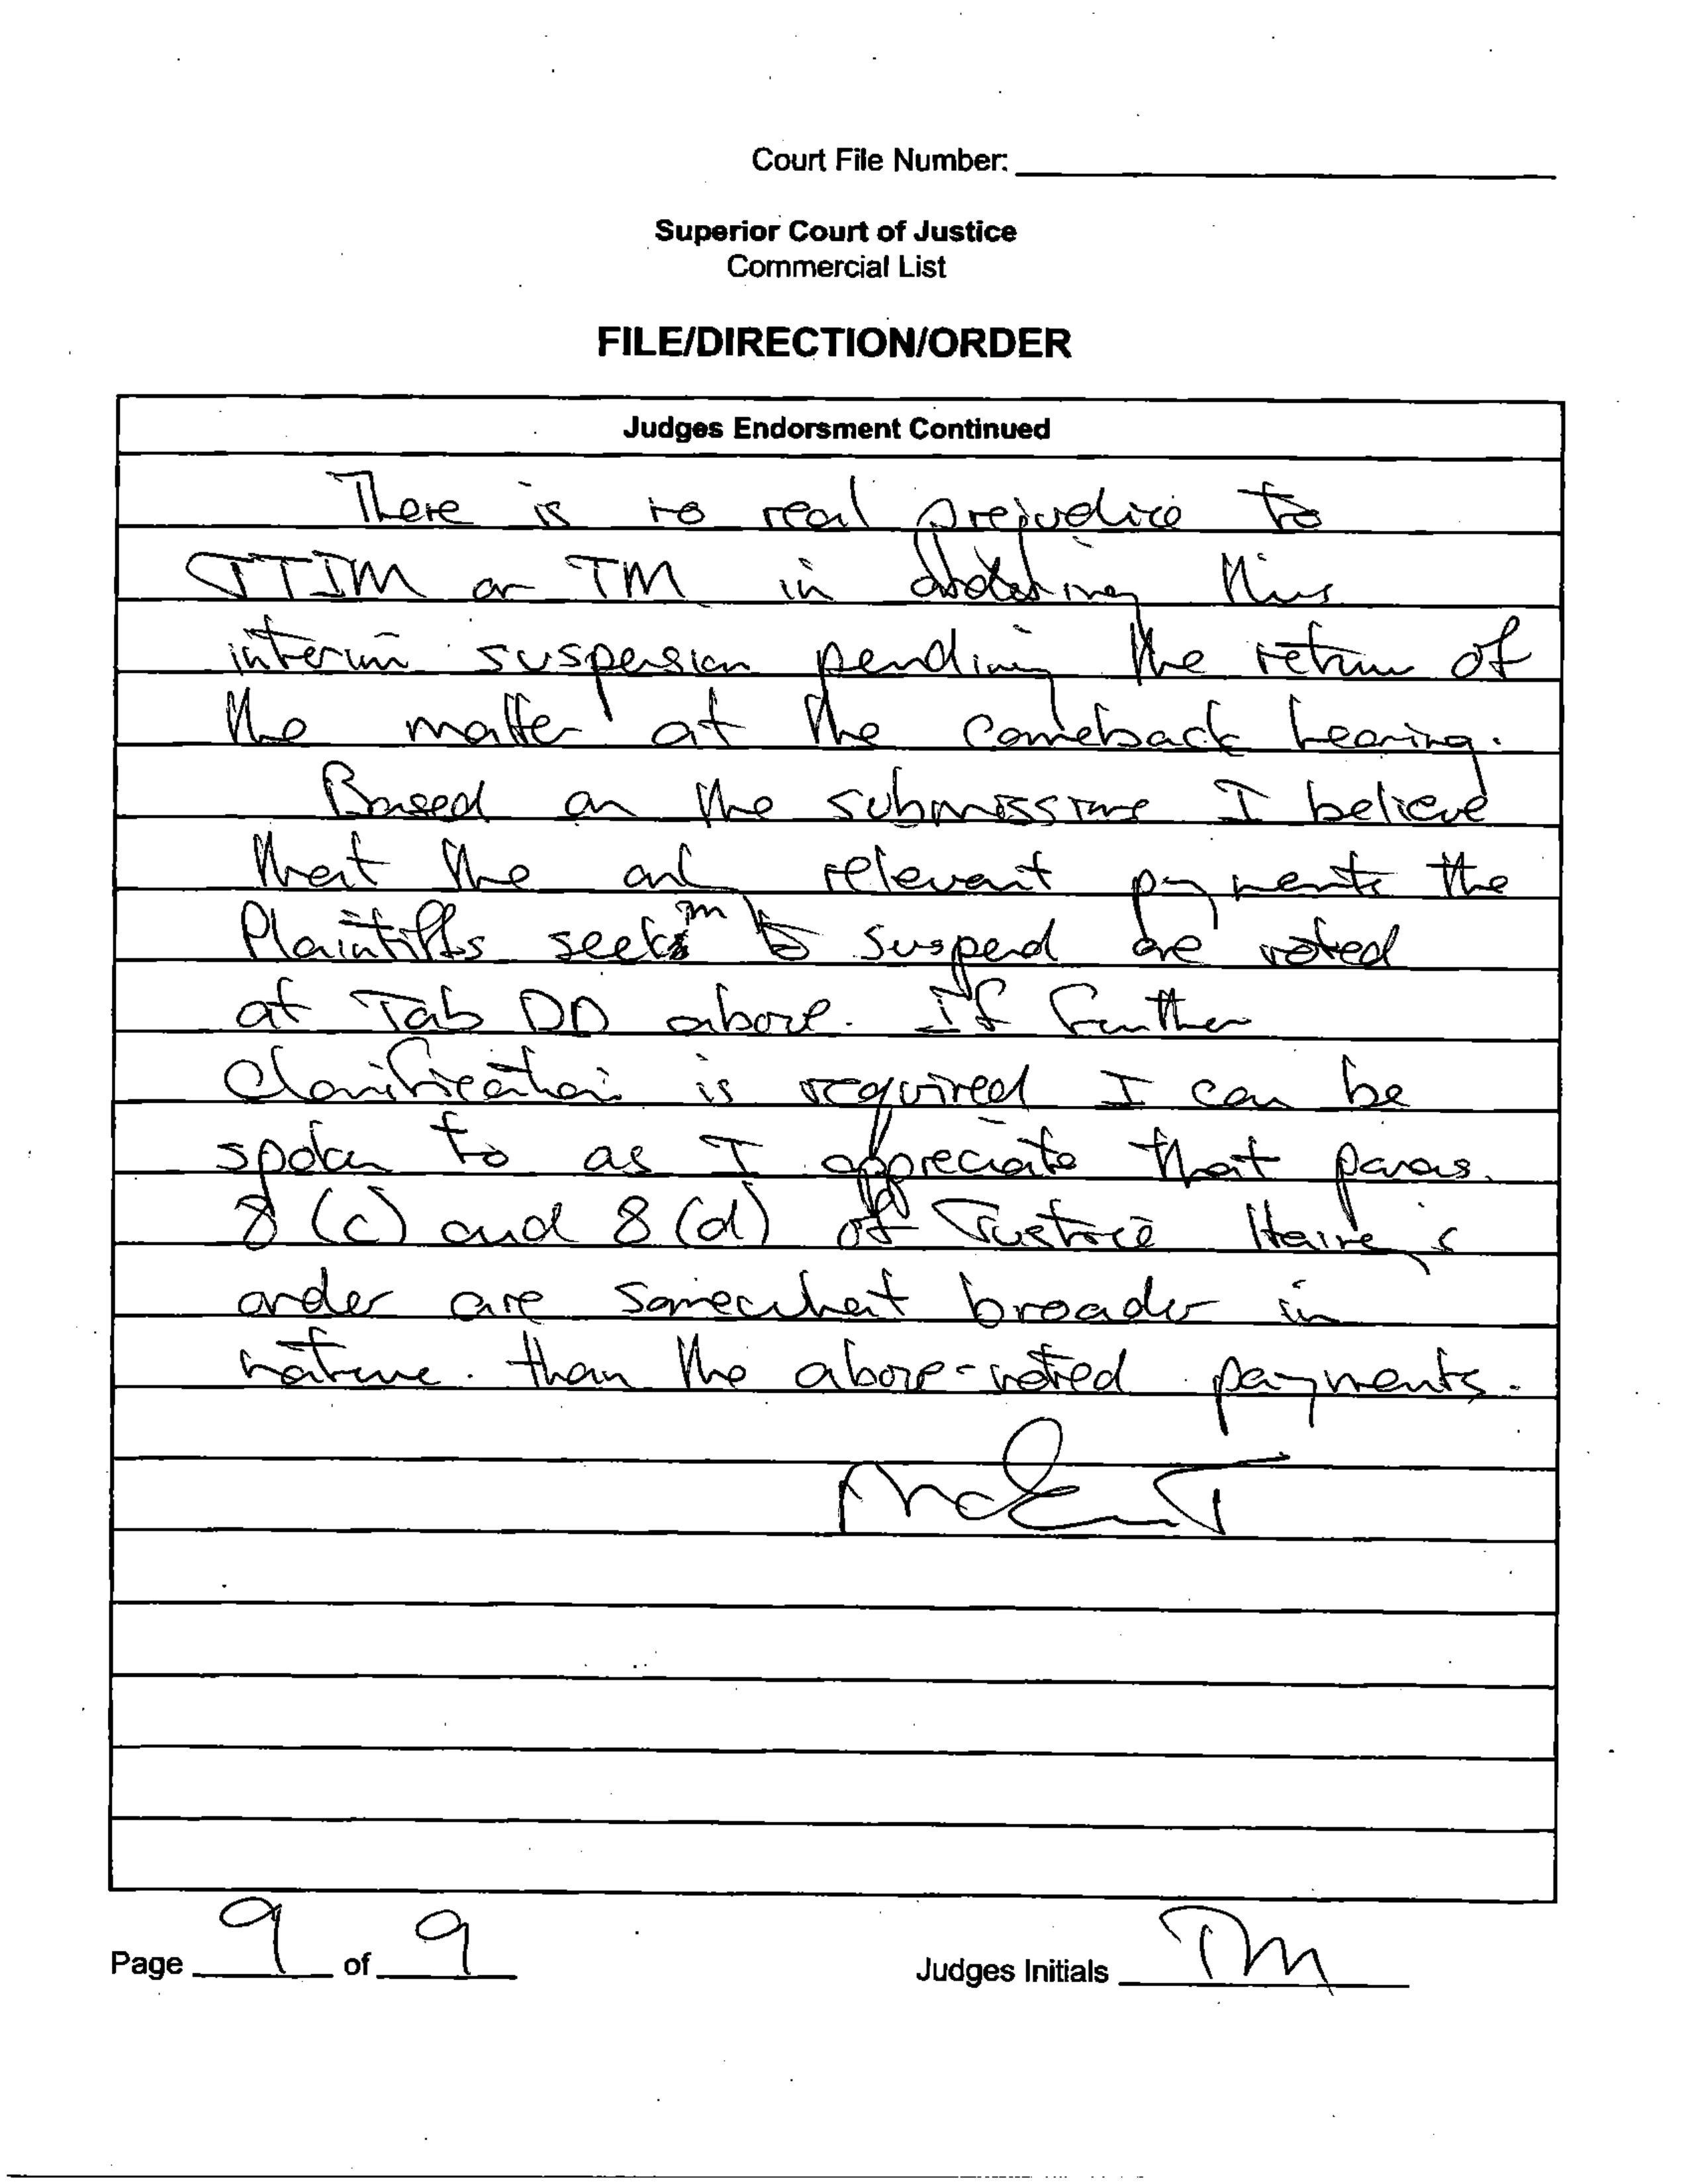 Court File Number:
Superior Court of Justice
Commercial List
FILE/DIRECTION/ORDER
Judges Endorsment Continued
There is no real prejudice to
TTIM or TM in this
interim suspension pending the return of
the matter at the comeback hearing.
Based on the submissions I believe
that the only relevant payments the
Plaintiffs seek to suspend are noted
at Tab DD above. If further
clarification is required I can be
spoken to as I appreciate that paras.
8 (c) and 8 (d) of Justice Hainey's
order are somewhat broader in
nature than the above-noted payments.
Page 9 of 9
Judges Initials TM